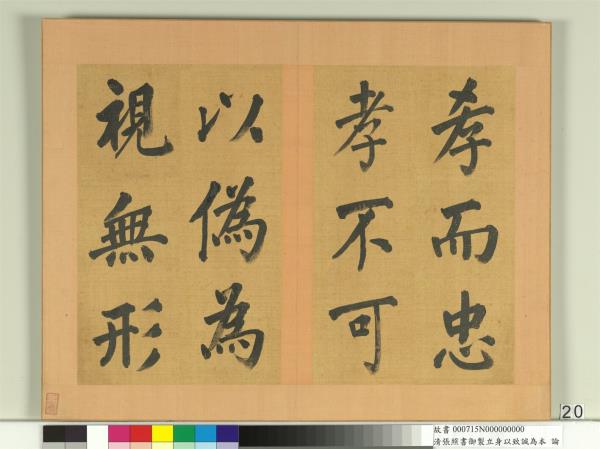 孝而忠
孝不可
以偽為
視無形
20
故書 000715N000000000
清張照書御製立身以致誠為本 論